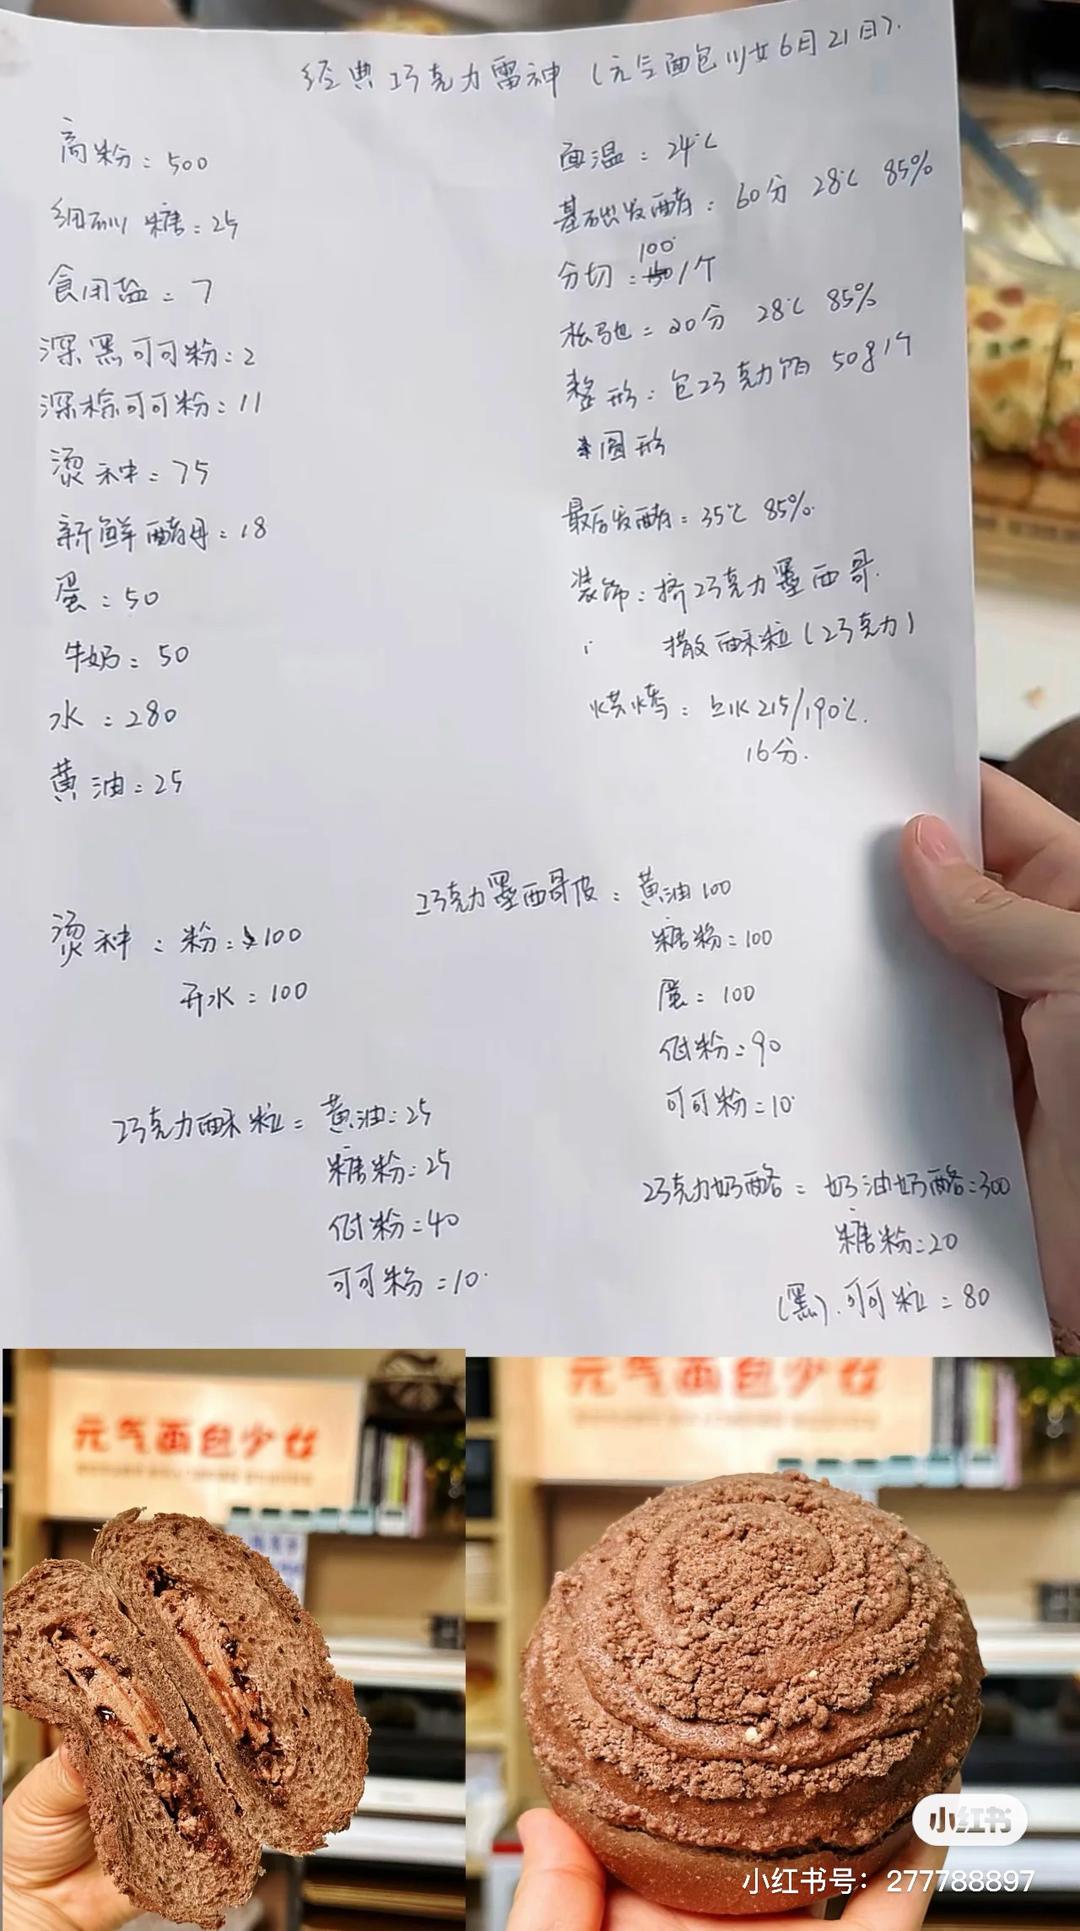 经典巧克力雷神（元气面包少女6月21日）.
高粉：500
细砂糖：25
食用盐：7
深黑可可粉：2
深棕可可粉：11
烫种：75
新鲜酵母：18
蛋：50
牛奶：50
水：280
黄油：25
面温：24℃
基础发酵：60分 28℃ 85%
100
分切：150/个
松弛：20分 28℃ 85%
整形：包巧克力馅 50g1个
圆形
最后发酵：35℃ 85%
装饰：挤巧克力墨西哥.
撒酥粒（巧克力）
烘烤：上火215/190℃.
16分.
烫种：粉：100
开水：100
巧克力墨西哥皮：黄油100
糖粉：100
蛋：100
低粉：90
可可粉：10
巧克力酥粒：黄油：25
糖粉：25
低粉：40
可可粉：10
巧克力奶酪：奶油奶酪：300
糖粉：20
（黑）.可可粒：80
元气面包少女
元气面包少女
小红书
小红书号：277788897